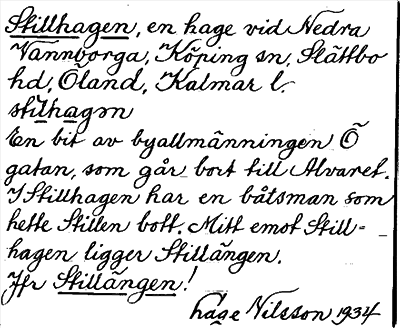 Stillhagen, en hage vid Nedra
Vannborga, Köping sn, Slättbo
hd, Öland, Kalmar l.
stilhagən
En bit av byallmänningen Ö
gatan, som går bort till Alvaret.
I Stillhagen har en båtsman som
hette Stillen bott. Mitt emot Still-
hagen ligger Stillängen.
Jfr Stillängen!
Håge Nilsson 1934